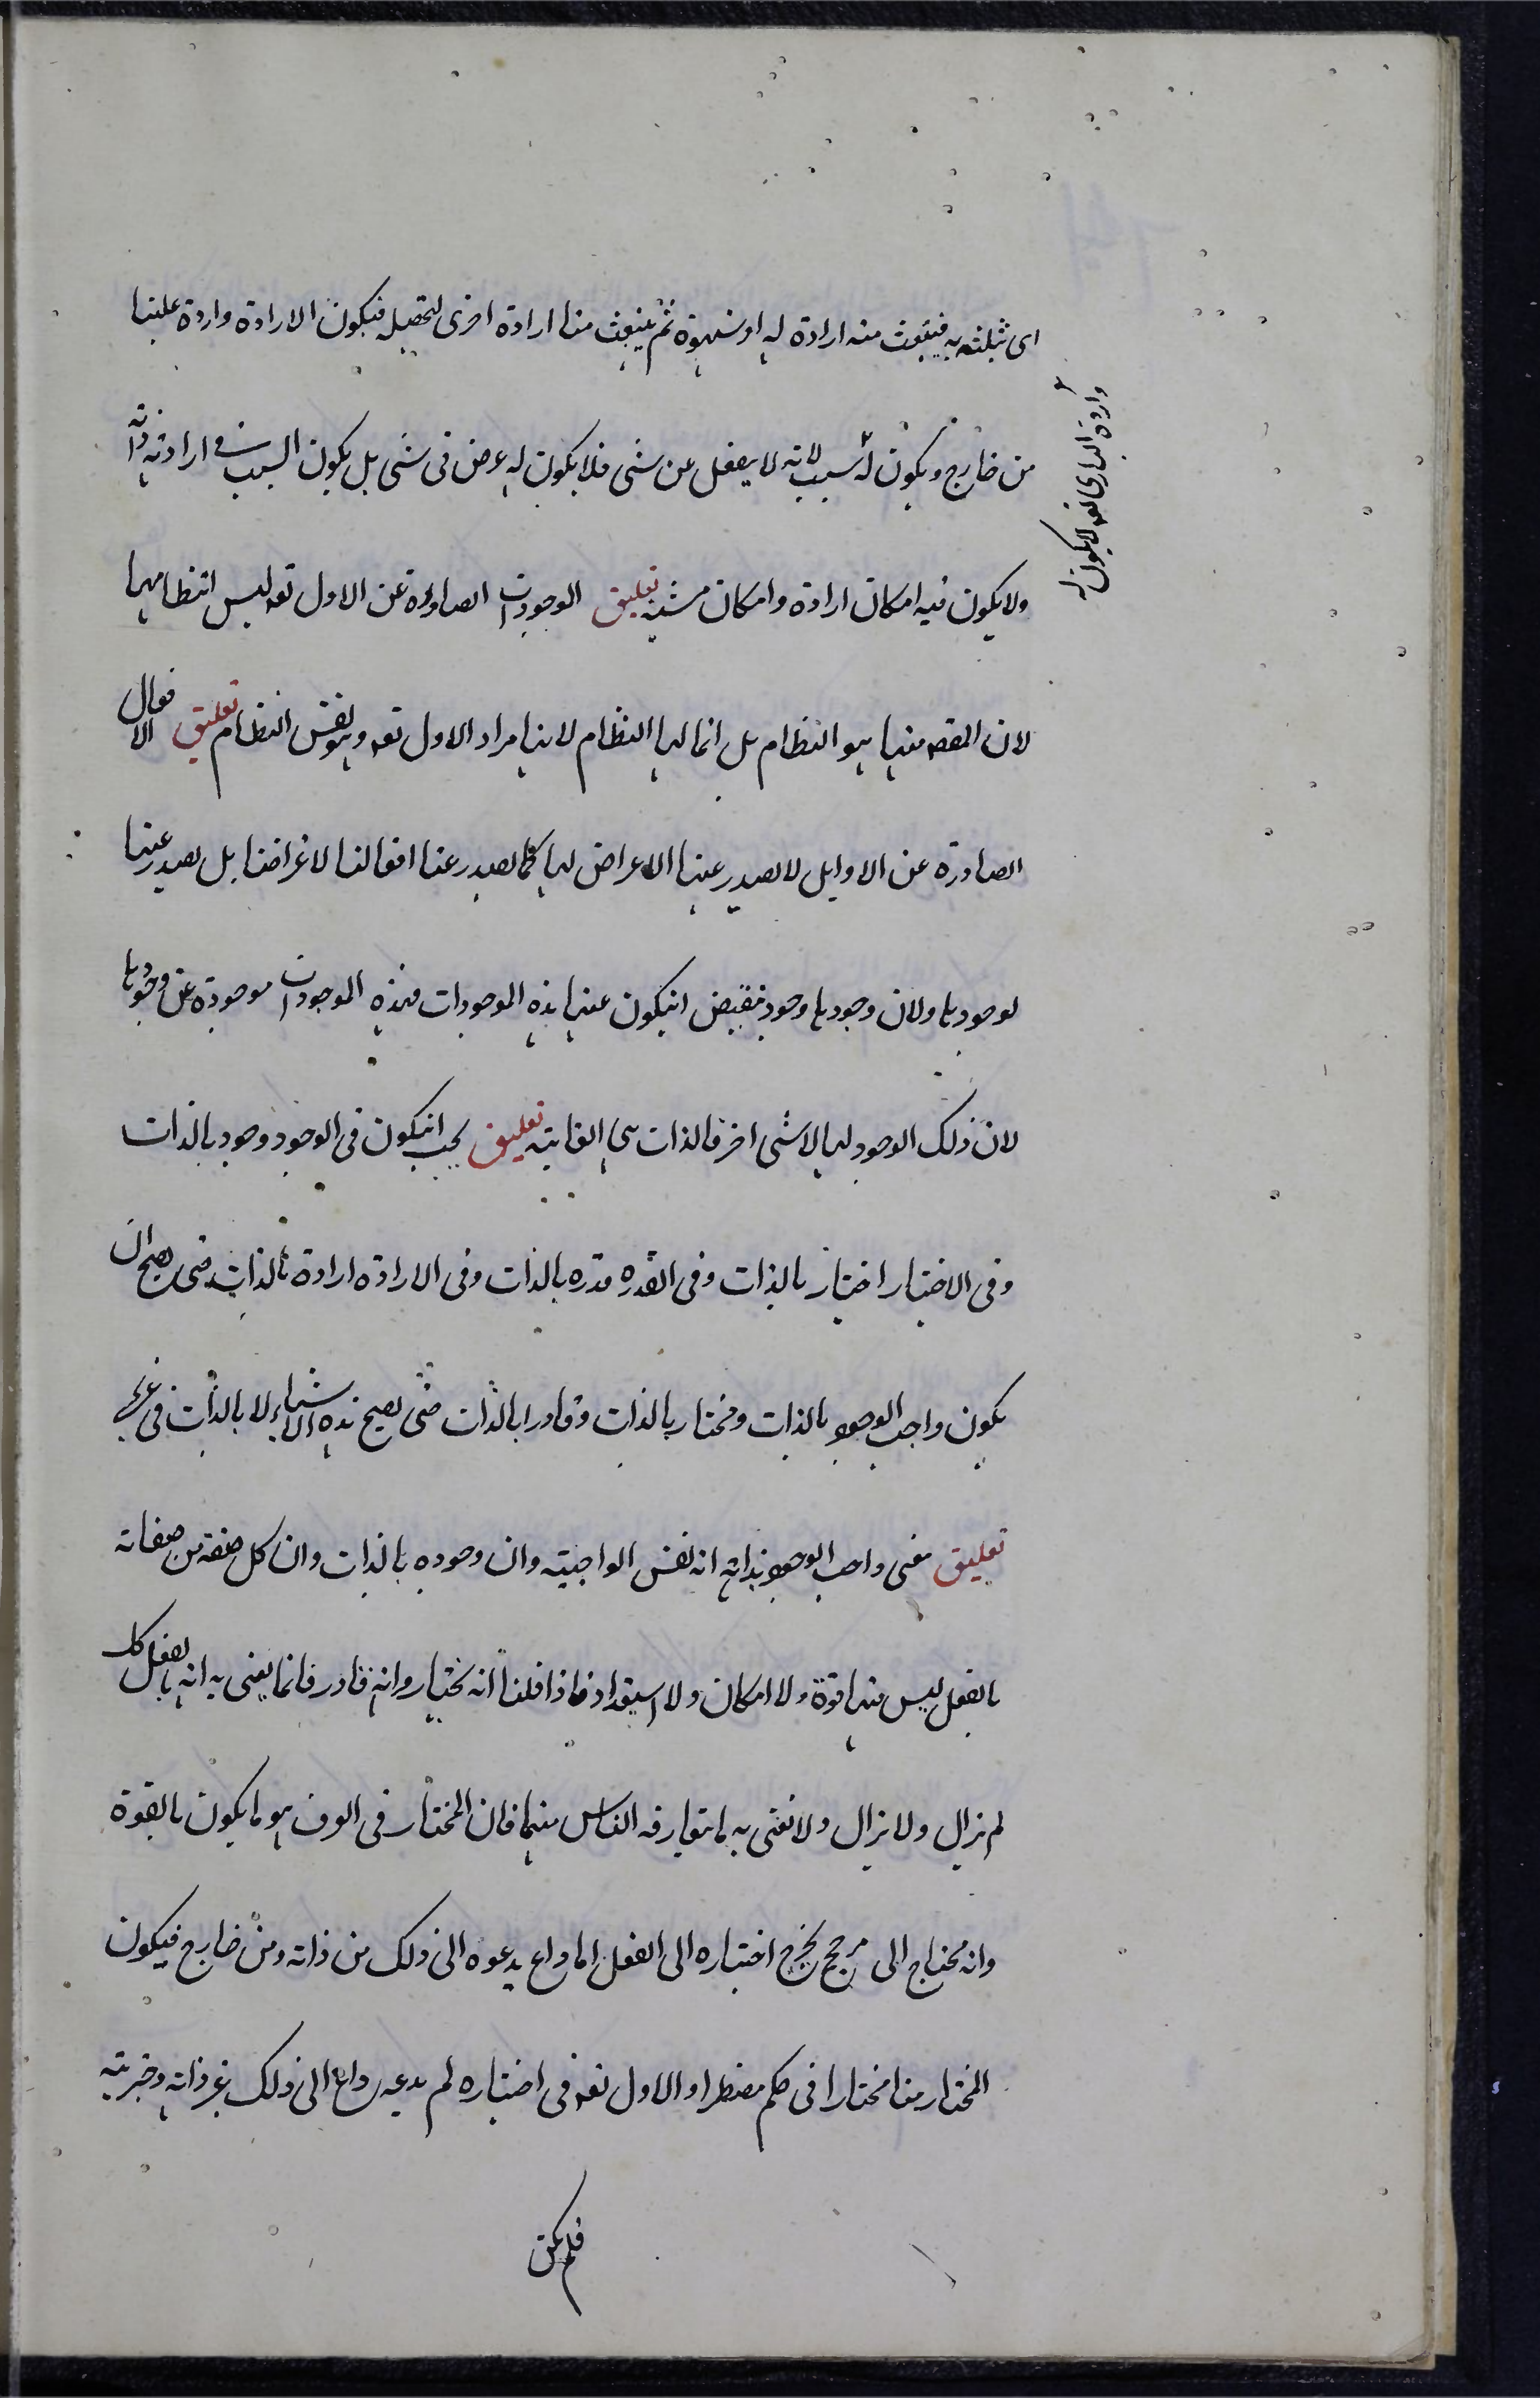 اى ثبلته به فينبعث منه ارادة له او شهوة ثم ينبعث منا ارادة اخرى لتحصيله فيكون الارادة واردة علينا
من خارج ويكون له سبب لانه لا يعقل عن شى فلا يكون له غرض فى شى بل يكون السبب فى ارادته ذاته
وارادة البارى تعه لايكون له
ولا يكون فيه امكان ارادة وامكان مشيه تعليق الوجودات الصادرة عن الاول تعه ليس انتظامهما
لان المقصه منها هو النظام بل انما لها النظام لانها مراد الاول تعه وهو نفس النظام تعليق الافعال
الصادرة عن الاوايل لا يصدر عنها الاعراض لها كما يصدر عنا افعالنا لاغراضنا بل يصدر عنها
لوجودها ولان وجودها وجود يقتضى انيكون عنها هذه الموجودات فهذه الموجودات موجودة عن وجودها
لان ذلك الوجود لها لا شى اخر فالذات هى الغايته تعليق يجب انيكون فى الوجود وجود بالذات
وفى الاختيار اختيار بالذات وفى القدره قدره بالذات وفى الارادة ارادة بالذات حتى يصح ان
يكون واجب الوجود بالذات ومختار بالذات وقادرا بالذات حتى يصح هذه الاشياء لا بالذات فى غيره
تعليق معنى واجب الوجود بذاته انه نفس الواجبيته وان وجوده بالذات وان كل صفة من صفاته
بالفعل ليس فيها قوة ولا امكان ولا استعداد فاذا قلنا انه مختيار وانه قادر فانما يعنى به انه بالفعل كك
لم يزال ولا يزال ولا نعنى به ما يتعارفه الناس منهما فان المختار فى العرف هو ما يكون بالقوة
وانه محتاج الى مرجح يخرج اختياره الى الفعل اما داع يدعوه الى ذلك من ذاته ومن خارج فيكون
المختار منا مختارا فى حكم مضطر او الاول تعه فى اختياره لم يدعه داع الى ذلك غير ذاته وخيريته
فلم يكن